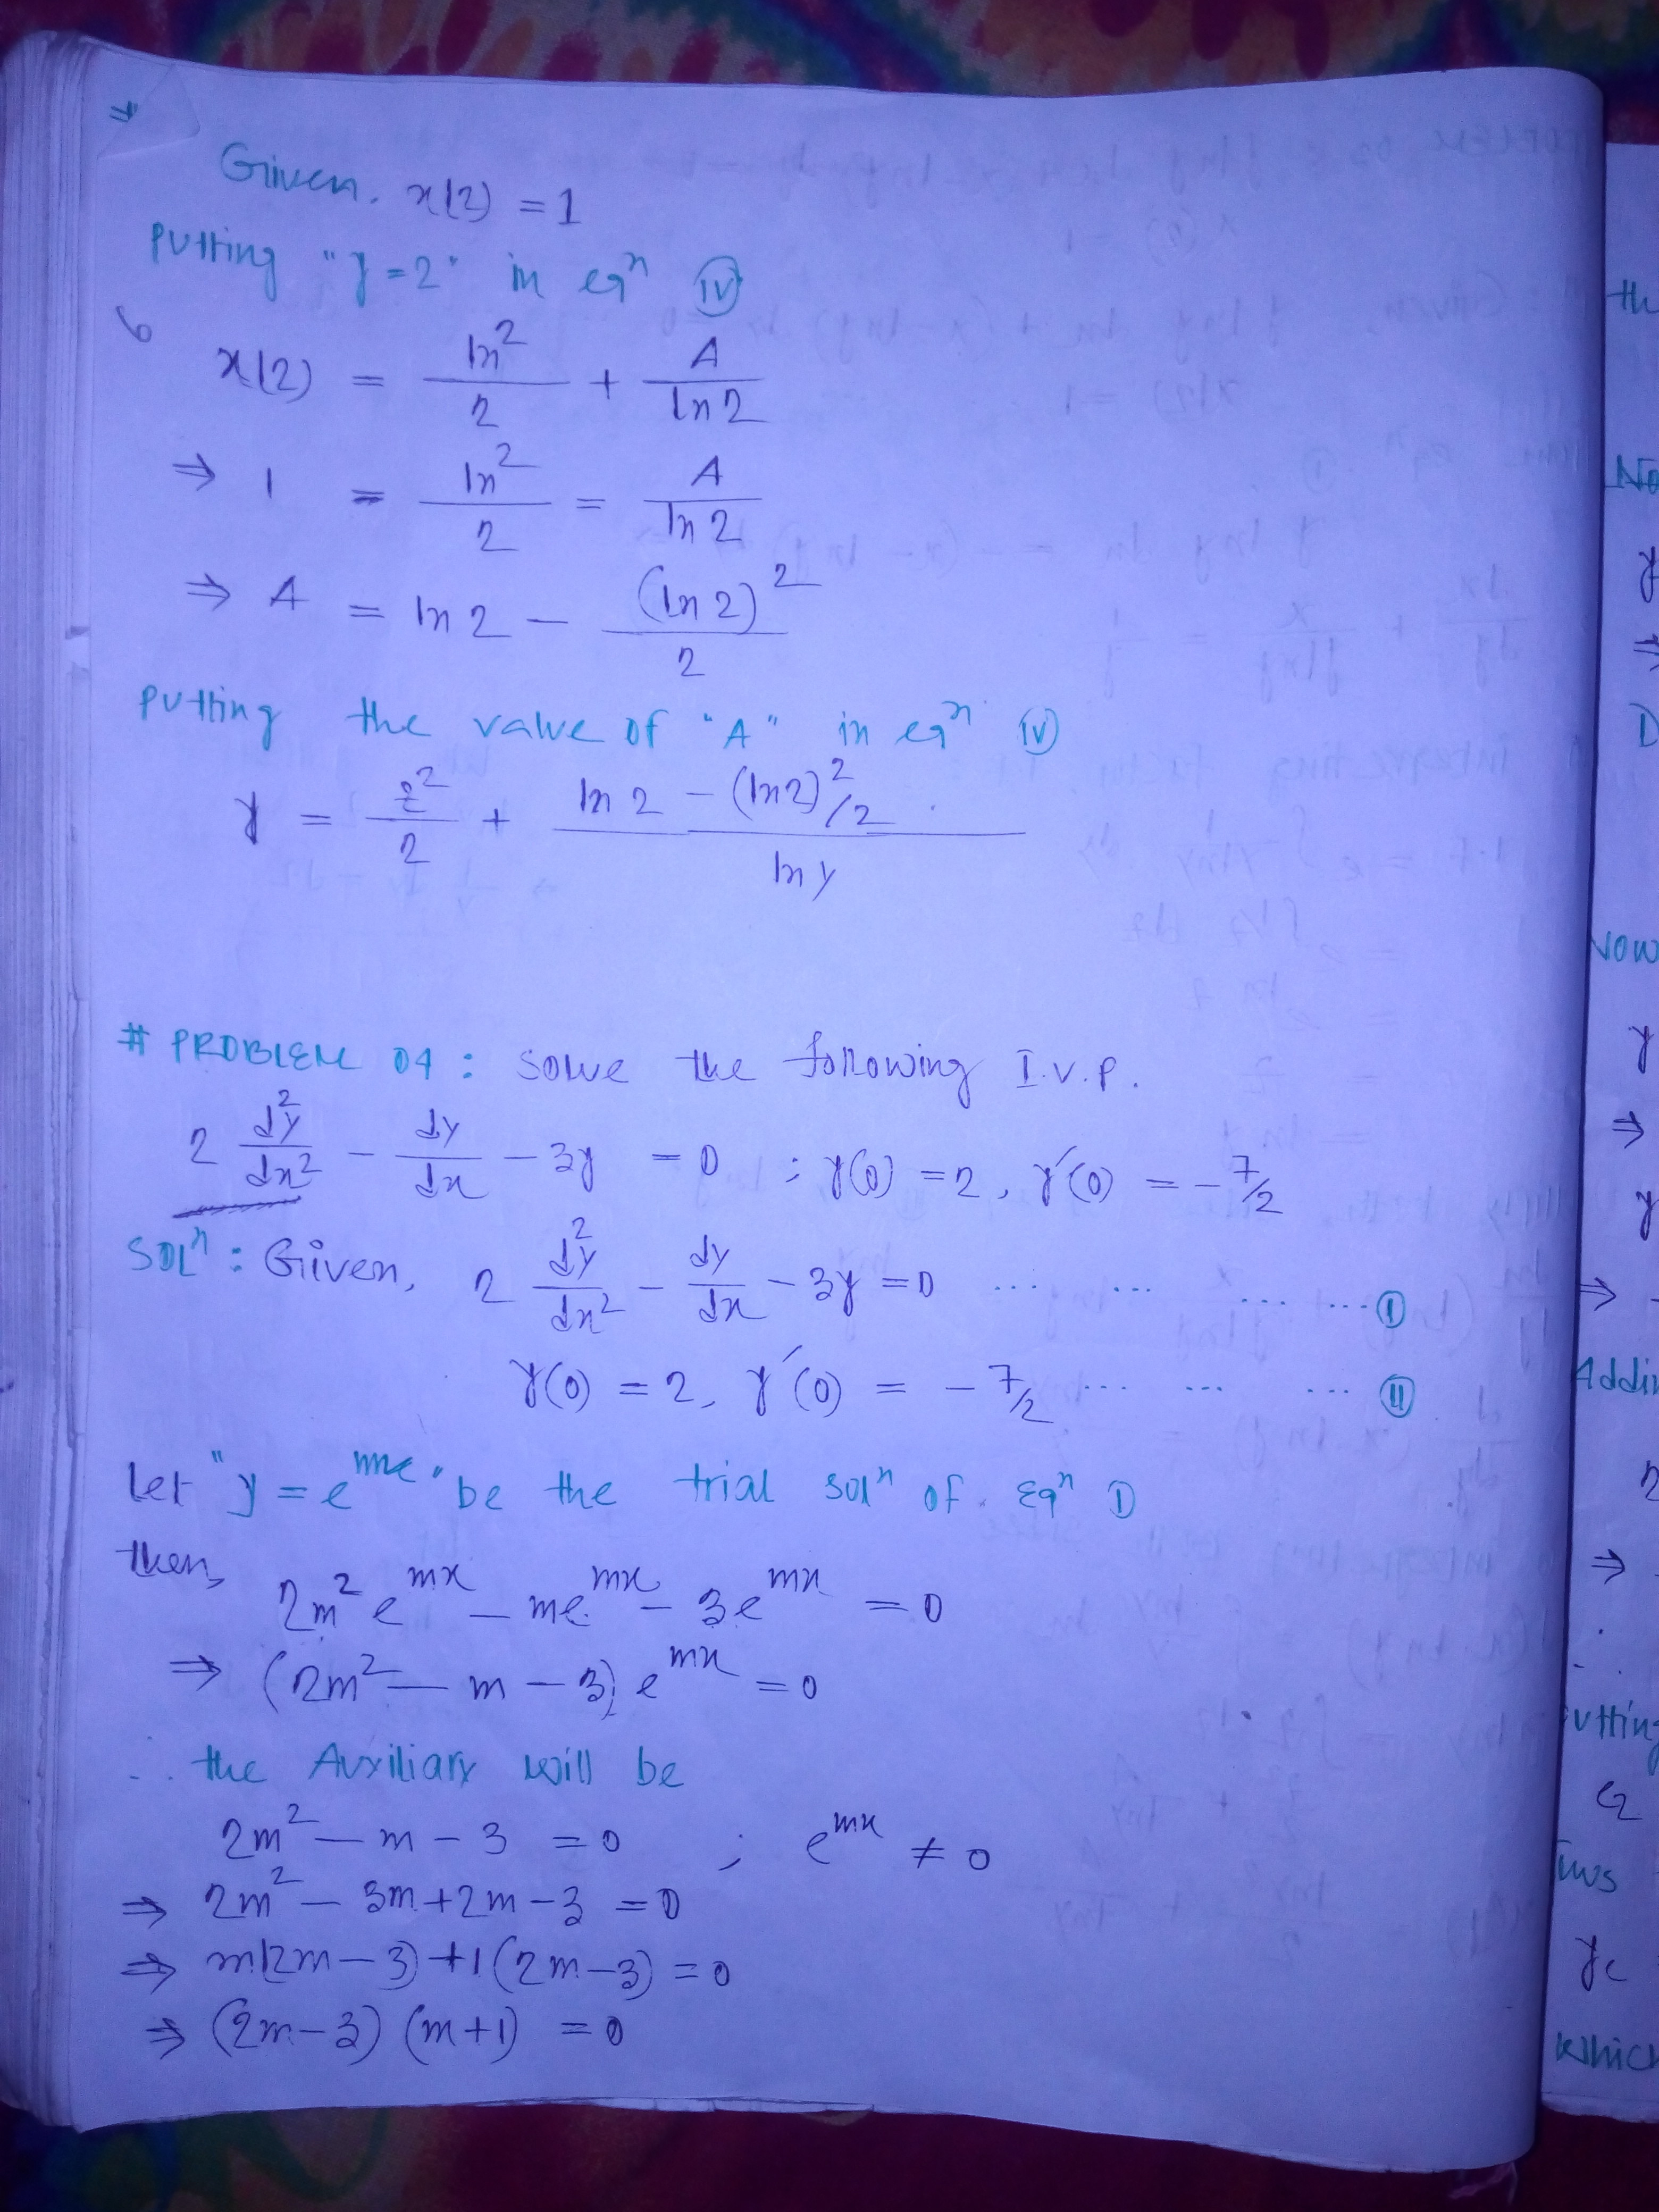 Given, x(2) = 1
Putting "y = 2" in eqⁿ (IV)
x(2) = ln²/2 + A/ln 2
⇒ 1 = ln²/2 = A/ln 2
⇒ A = ln 2 − (ln 2)²/2
Putting the value of "A" in eqⁿ (IV)
y = z²/2 + (ln 2 − (ln 2)²/2)/ln y
# PROBLEM 04 : Solve the following I.V.P.
2 d²y/dx² − dy/dx − 3y = 0 ; y(0) = 2, y′(0) = −7/2
SOLⁿ : Given, 2 d²y/dx² − dy/dx − 3y = 0 ... ... ... ... (I)
y(0) = 2, y′(0) = −7/2 ... ... ... (II)
Let "y = e^mx" be the trial solⁿ of Eqⁿ (I)
then, 2m² e^mx − me^mx − 3e^mx = 0
⇒ (2m² − m − 3) e^mx = 0
∴ the Auxiliary will be
2m² − m − 3 = 0 ; e^mx ≠ 0
⇒ 2m² − 3m + 2m − 3 = 0
⇒ m(2m − 3) + 1(2m − 3) = 0
⇒ (2m − 3) (m + 1) = 0